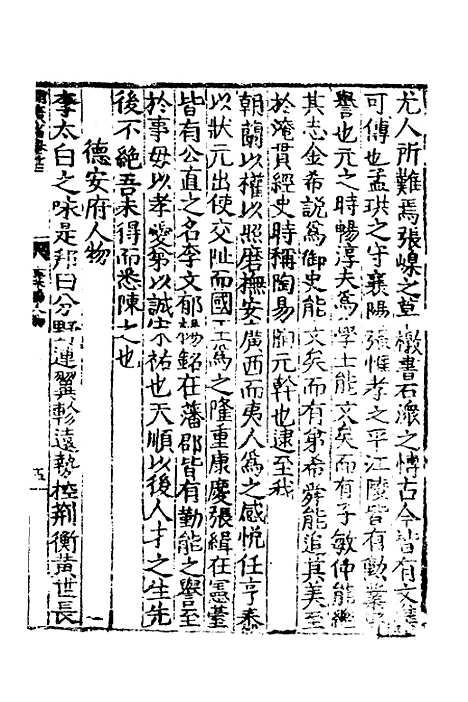 尤人所難焉張嵲之草檄書石𤄊之博古今皆有文
可傳也孟珙之守襄陽張惟孝之平江陵皆有勳業
譽也元之時暢淳夫為學士能文矣而有子敏仲能繼
其志金希說為御史能文矣而有弟希舜能追其美至
於淹貫經史時稱陶易顧元幹也逮至我
朝蘭以權以照磨撫安廣西而夷人為之感悅任亨泰
以狀元出使交阯而國王為之隆重康慶張緝在憲臺
皆有公直之名李文郁楊銘在藩郡皆有勤能之譽至
於事母以孝愛弟以誠宋祐也天順以後人才之生先
後不絕吾未得而悉陳之也
德安府人物
李太白之味是邦曰分野連翼軫遠勢控荊衡黃世長
五